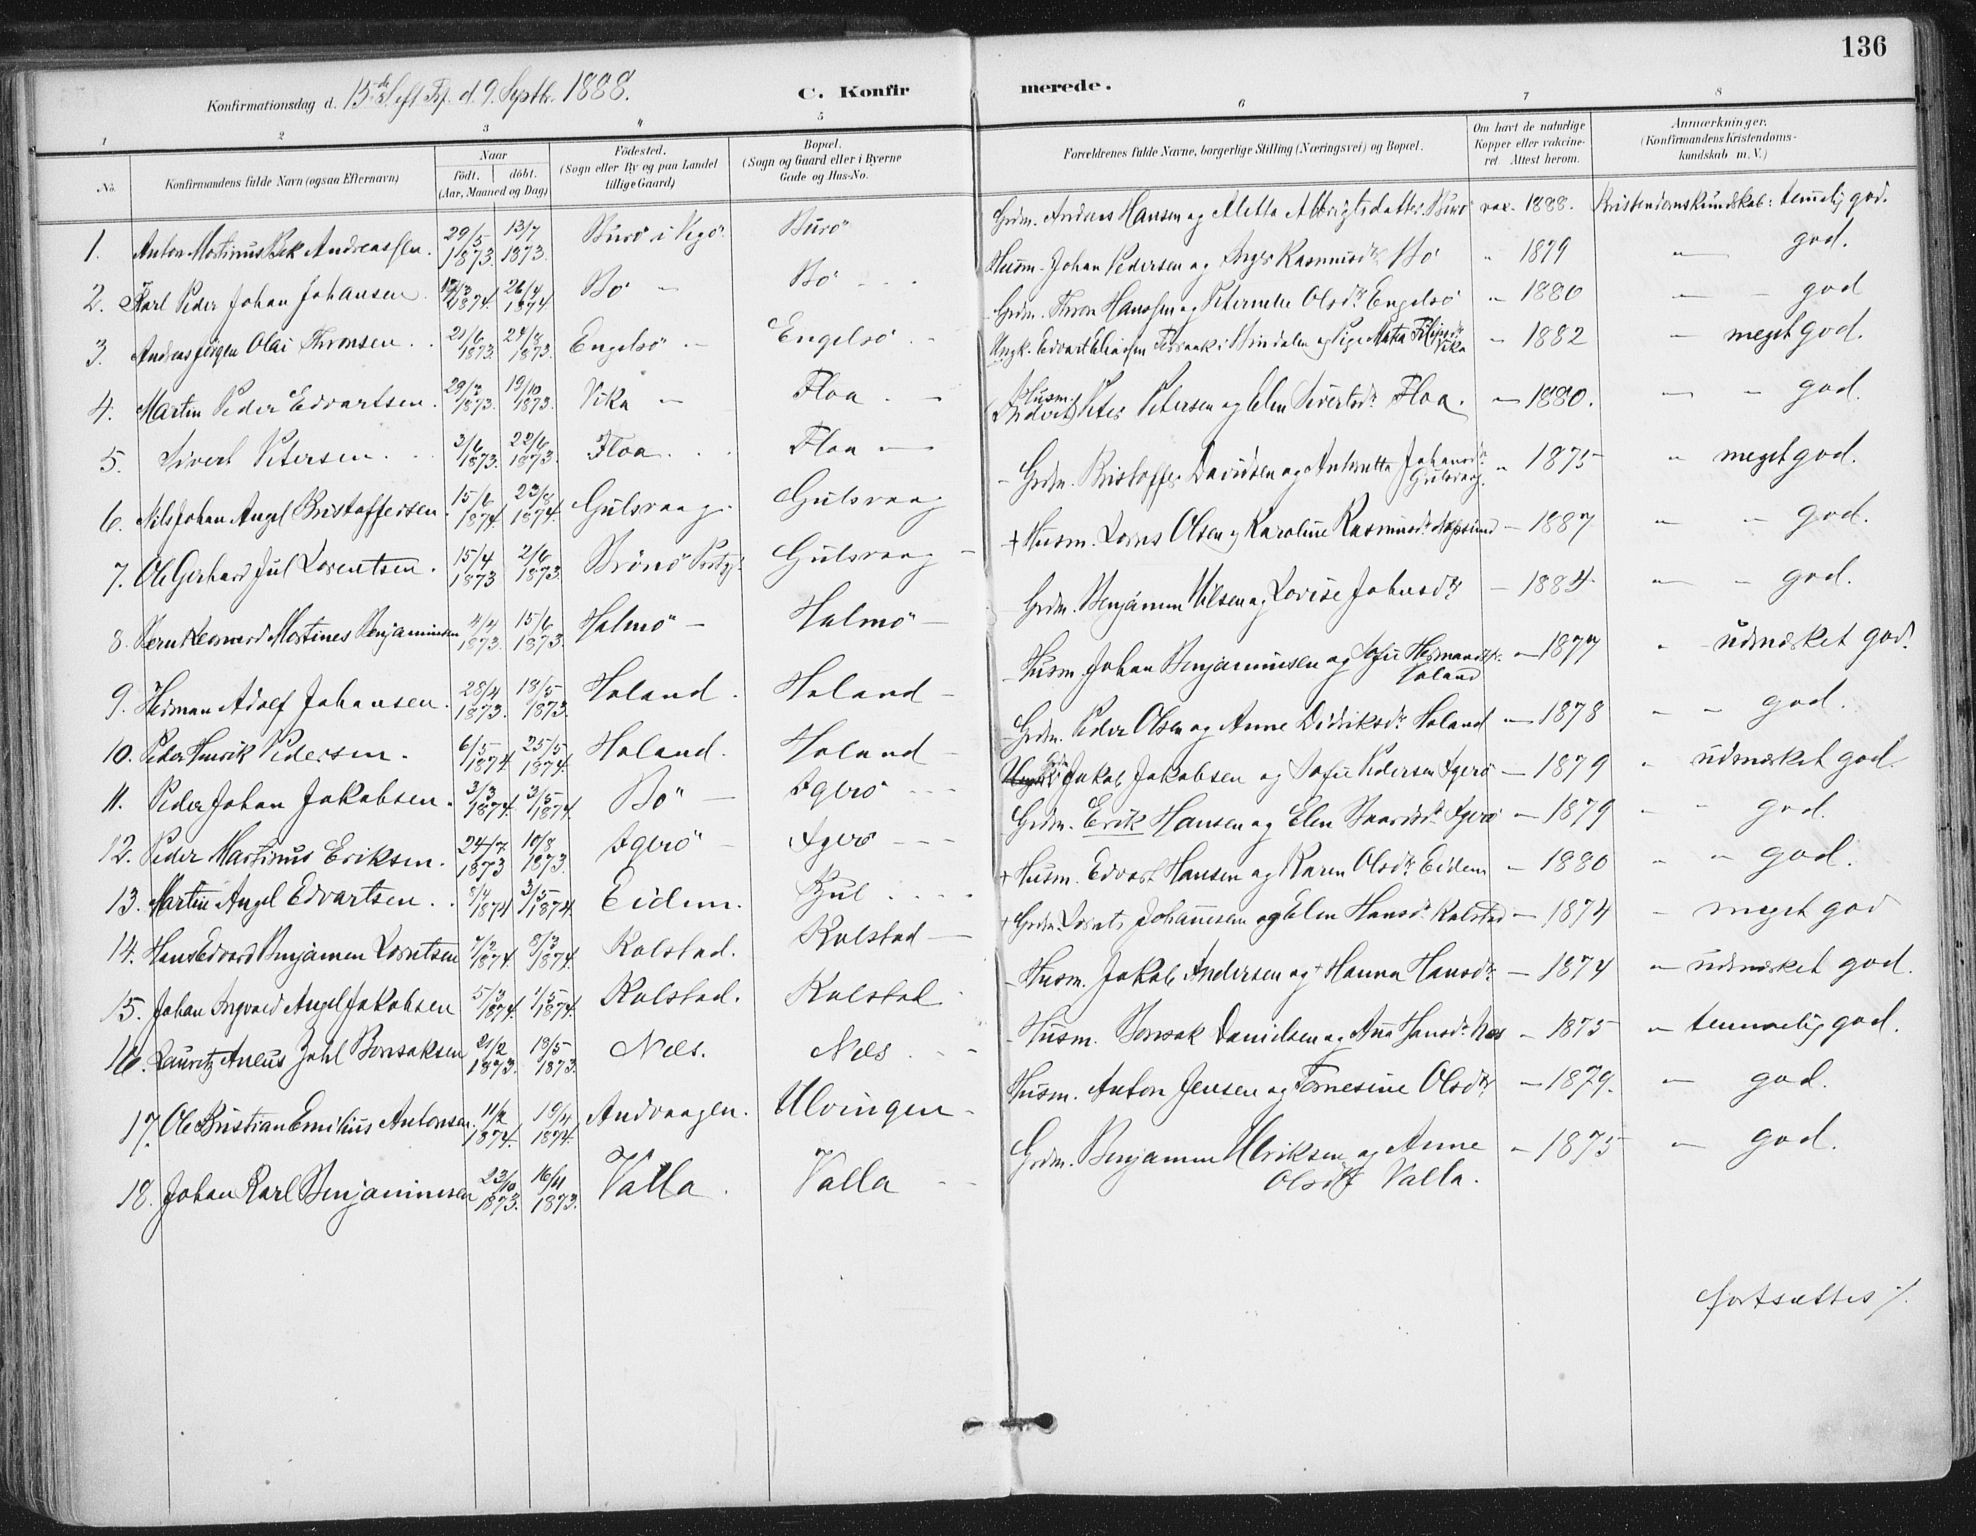 136
Konfirmationsdag d. 15de S. eft. Tr. d. 9. Septbr. 1888.
C. Konfirmerede.
1 2 3 4 5 6 7 8
No. Konfirmandens fulde Navn (ogsaa Efternavn) Naar födt. döbt. (Aar, Maaned og Dag) Födested. (Sogn eller By og paa Landet tillige Gaard) Bopæl. (Sogn og Gaard eller i Byerne Gade og Hus-No. Forældrenes fulde Navne, borgerlige Stilling (Næringsvei) og Bopæl. Om havt de naturlige Kopper eller vakcineret Attest herom. Anmærkninger. (Konfirmandens Kristendomskundskab m. V.)
1. Anton Martinus Bek Andreassen. 29/5 1873. 13/7 1873. Burö i Vegö Burö Grdm. Andreas Hansen og Aletta Albrigtsdatter Burö vax. 1888. Kristendomskundskab: temmelig god.
2. Karl Peder Johan Johansen. 1874. 26/4 1874 Bö — Bö Husm. Johan Pedersen og Inger Rasmusdtr Bö " 1879 — god.
3. Andreas Jörgen Olai Thronsen. 21/6 1873 24/8 1873. Engelsö — Engelsö Grdm. Thron Hanssen og Peternelle Olsdtr Engelsö " 1880 — god
4. Martin Peder Edvartsen. 1873. 19/10 1873. Vika — Floa — Ungk. Edvart Eliassen i Bindalen og Pige Marta Vika — 1882 — meget god.
5. Sivert Petersen. 3/6 1873. 22/6 1873. Floa Floa — Husm. Peter Petersen og Elen Sivertsdr Floa. — 1880. — god.
6. Nils Johan Angel Kristoffersen 15/6 1874. 23/8 1874. Gulsvaag. Gulsvaag — Grdm. Kristoffer Davidsen og Antonetta Johansdr Gulsvaag. " 1875 " meget god.
7. Ole Gerhard Jul Lorentsen. 15/4 1873 2/6 1873. Brönö Gulsvaag — + Husm. Lorns Olsen og Karoline Rasmusdr — 1887 " god.
8. Bern Leonard Martines Benjaminsen 1873. 15/6 1873. Halmö — Halmö — Grdm. Benjamin Nilsen og Lovise Johnsdtr — 1884 — god.
9. Herman Adolf Johansen. 28/4 1873. 18/5 1873. Holand. Holand — Husm. Johan Benjaminsen og Sofie Hermandtr. Holand — 1877 " udmærket god.
10. Peder Henrik Pedersen. 6/5 1874. 25/5 1874. Holand. Holand — Grdm. Peder Olsen og Anne Didriksdr Holand — 1878 — god.
11. Peder Johan Jakobsen. 3/3 1874. 3/5 1874. Bö — Igerö Jakob Jakobsen og Sofie Pedersen Igerö — 1879 " udmærket god.
12. Peder Martinus Eriksen. 24/7 1873 10/8 1873. Igerö — Igerö Grdm. Erik Hansen og Elen Igerö — 1879 " god.
13. Martin Angel Edvartsen. 1874 3/5 1874. Eidem. Kjul + Husm. Edvart Hansen og Karen Olsdr Eidem — 1880 " god.
14. Hans Edvard Benjamen Lorntsen 7/2 1874 8/3 1874. Rolstad. Rolstad — + Grdm. Lornts Johannesen og Elen Hansdr Rolstad — 1874 — meget god
15. Johan Ingvard Angel Jakobsen 5/3 1874. 1/5 1874. Rolstad. Rolstad — Husm. Jakob Andersen og + Hanna Hansdtr — 1874 — udmærket god.
16. Lauritz Aneus Johl Bonsaksen 21/2 1873. 18/5 1873. Næs. Næs Husm. Bonsak Danielsen og Ana Hansdr Næs — 1875 — temmelig god.
17. Ole Kristian Emilius Antonsen 11/2 1874. 19/4 1874. Andvaagen. Ulvingen — Husm. Anton Jensen og Tornesine Olsdtr — 1879. — god.
18. Johan Karl Benjaminsen 23/10 1873. 16/11 1873. Valla. Valla Grdm. Benjamin Ulriksen og Anne Olsdtr Valla. — 1875 — god.
fortsættes ./.